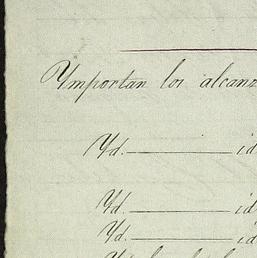 Ymportan los alcan
Yd. id
Yd. id
Yd. id